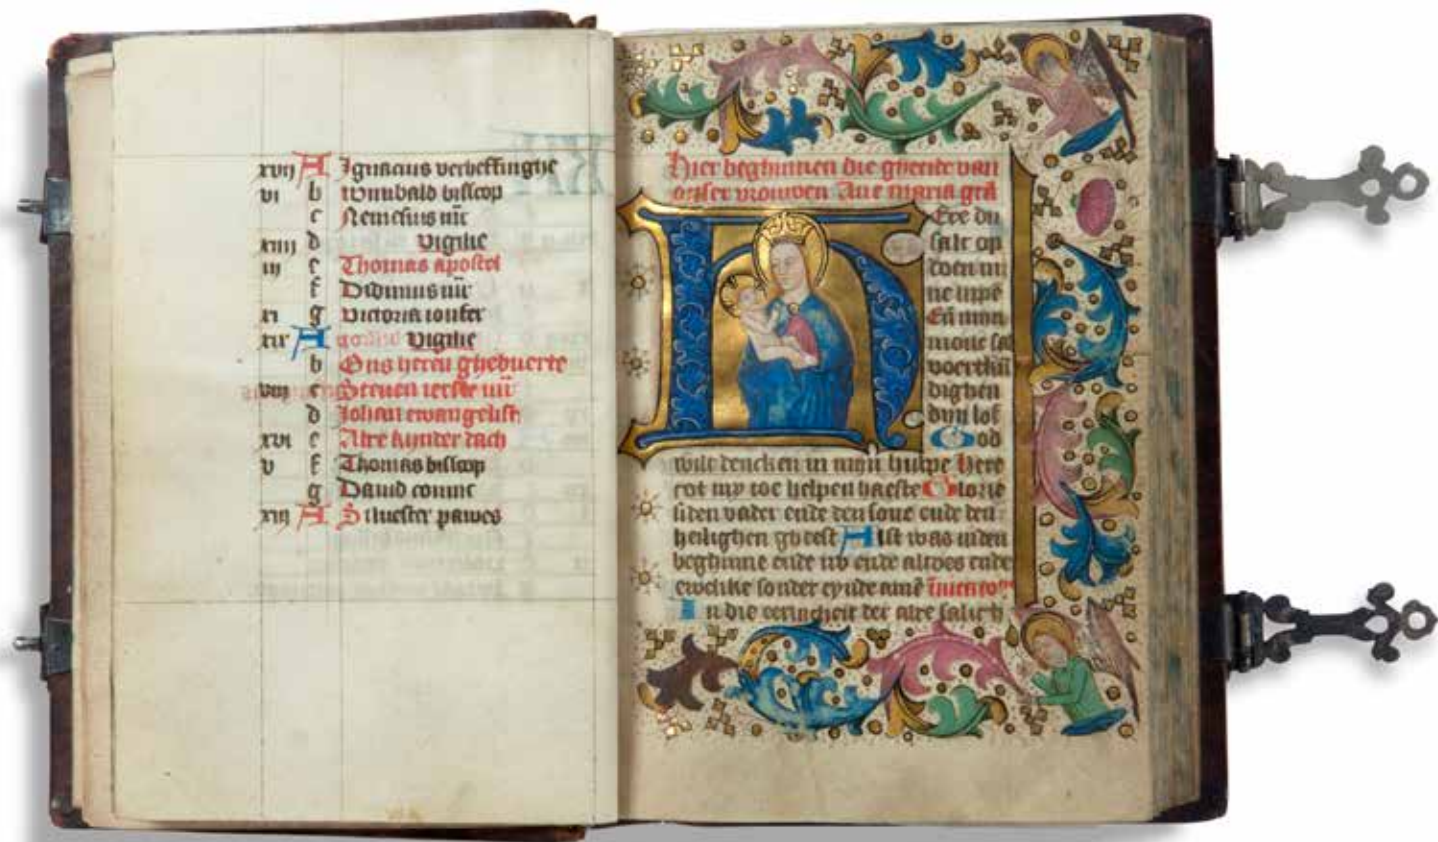 xvij A Ignacius verheffinghe
vi b Wunibald bisscop
c Nemesius mr̄
xiiij d Vigilie
iij e Thomas apostel
f Didimus mr̄
xi g Victoria ioncfer
xix A Vigilie
b Ons heren ghebuerte
viij c Steuen eerste mr̄
d Johan ewangelist
xvi e Alre kynder dach
v f Thomas bisscop
g Dauid coninc
xiij A Siluester pawes
Hier beghinnen die ghetide van
onser vrouwen Aue maria grā
Ere du
salt op
doen mi
ne lippē
Eñ mijn
mont sal
voertkū
dighen
dijn lof
God
wilt dencken in mijn hulpe Here
tot my toe helpen haeste Glorie
si den vader ende den sone ende den
heilighen gheest Alst was inden
beghinne ende nv ende altoes ende
ewelike sonder eynde amē
In die der alre